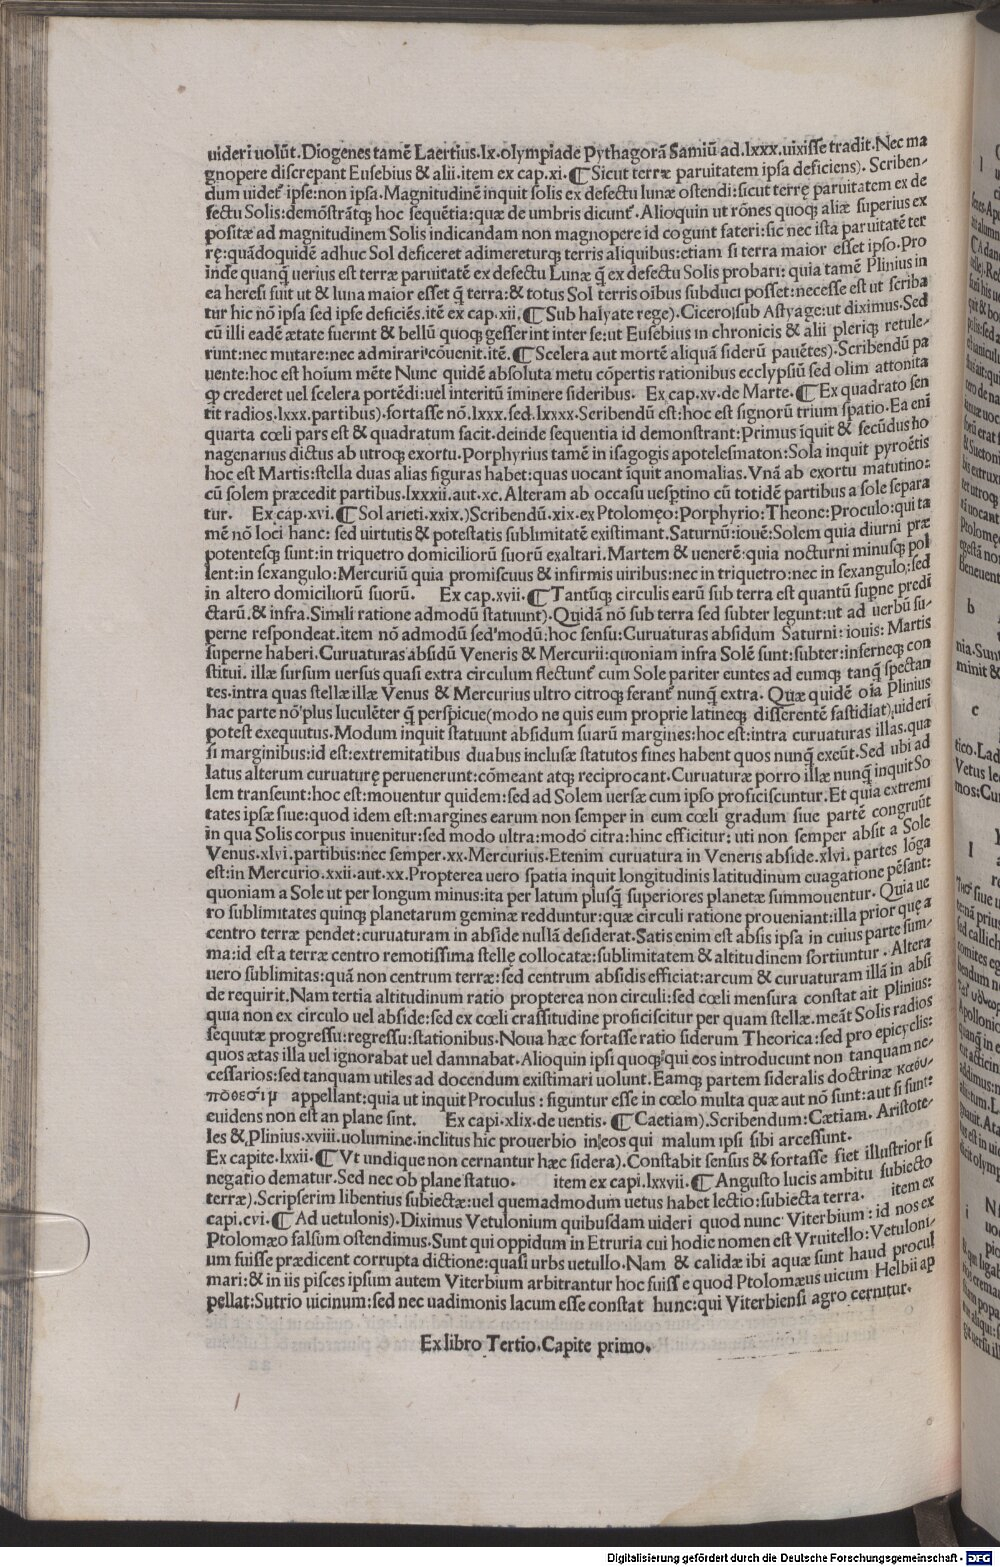 uideri uolūt.Diogenes tamē Laertius.Ix.olympiade Pythagorā Samiū ad.lxxx.uixisse tradit.Nec ma
gnopere discrepant Eusebius & alii.item ex cap.xi.¶Sicut terræ paruitatem ipsa deficiens). Scriben-
dum uidet᷑ ipse:non ipsa.Magnitudinē inquit solis ex defectu lunæ ostendi:sicut terrę paruitatem ex de
fectu Solis:demōstrātq; hoc sequētia:quæ de umbris dicunt᷑.Alioquin ut rōnes quoq; aliæ superius ex
positæ ad magnitudinem Solis indicandam non magnopere id cogunt fateri:sic nec ista paruitatē ter
rę:quādoquidē adhuc Sol deficeret adimereturq; terris aliquibus:etiam si terra maior esset ipso.Pro
inde quanq̄ uerius est terræ paruitatē ex defectu Lunæ q̄ ex defectu Solis probari: quia tamē Plinius in
ea heresi fuit ut & luna maior esset q̄ terra:& totus Sol terris oībus subduci posset:necesse est ut scriba
tur hic nō ipsa sed ipse deficiēs.itē ex cap.xii.¶Sub halyate rege).Cicero:sub Astyage:ut diximus.Sed
cū illi eadē ætate fuerint & bellū quoq; gesserint inter se:ut Eusebius in chronicis & alii pleriq; retule-
runt:nec mutare:nec admirari cōuenit.itē.¶Scelera aut mortē aliquā siderū pauētes).Scribendū pa
uente:hoc est hoīum mēte Nunc quidē absoluta metu cōpertis rationibus ecclypsiū sed olim attonita
q; crederet uel scelera portēdi:uel interitū iminere sideribus. Ex cap.xv.de Marte.¶Ex quadrato sen
tit radios.lxxx.partibus).fortasse nō.lxxx.sed.lxxxx.Scribendū est:hoc est signorū trium spatio.Ea enī
quarta cœli pars est & quadratum facit.deinde sequentia id demonstrant:Primus īquit & secūdus ho
nagenarius dictus ab utroq; exortu.Porphyrius tamē in isagogis apotelesmaton:Sola inquit pyroētis
hoc est Martis:stella duas alias figuras habet:quas uocant īquit anomalias.Vnā ab exortu matutino:
cū solem præcedit partibus.lxxxii.aut.xc.Alteram ab occasu uesptino cū totidē partibus a sole separa
tur. Ex cap.xvi.¶Sol arieti.xxix.)Scribendū.xix.ex Ptolomęo:Porphyrio:Theone:Proculo:qui ta
mē nō loci hanc: sed uirtutis & potestatis sublimitatē existimant.Saturnū:iouē:Solem quia diurni præ
potentesq; sunt:in triquetro domiciliorū suorū exaltari.Martem & uenerē:quia nocturni minusq; pol
lent:in sexangulo:Mercuriū quia promiscuus & infirmis uiribus:nec in triquetro:nec in sexangulo,:sed
in altero domiciliorū suorū. Ex cap.xvii.¶Tantūq; circulis earū sub terra est quantū supne predi
ctarū.& infra.Simili ratione admodū statuunt).Quidā nō sub terra sed subter legunt:ut ad uerbū su-
perne respondeat.item nō admodū sed modū:hoc sensu:Curuaturas absidum Saturni:iouis: Martis
superne haberi.Curuaturas absidū Veneris & Mercurii:quoniam infra Solē sunt:subter:inferneq; con
stitui. illæ sursum uersus quasi extra circulum flectunt᷑ cum Sole pariter euntes ad eumq; tanq̄ spectan
tes.intra quas stellæ illæ Venus & Mercurius ultro citroq; ferant᷑ nunq̄ extra. Quæ quidē oīa Plinius
hac parte nō plus luculēter q̄ perspicue(modo ne quis eum proprie latineq; disserentē fastidiat),uideri
potest exequutus.Modum inquit statuunt absidum suarū margines:hoc est:intra curuaturas illas.qua
si marginibus:id est:extremitatibus duabus inclusæ statutos fines habent quos nunq̄ exeūt.Sed ubi ad
latus alterum curuaturę peruenerunt:cōmeant atq; reciprocant.Curuaturæ porro illæ nunq̄ inquit So
lem transeunt:hoc est:mouentur quidem:sed ad Solem uersæ cum ipso proficiscuntur.Et quia extremi
tates ipsæ siue:quod idem est:margines earum non semper in eum cœli gradum siue partē congruūt
in qua Solis corpus inuenitur:sed modo ultra:modo citra:hinc efficitur: uti non semper absit a Sole
Venus.xlvi.partibus:nec semper.xx.Mercurius.Etenim curuatura in Veneris abside.xlvi.partes lōga
est:in Mercurio.xxii.aut.xx.Propterea uero spatia inquit longitudinis latitudinum euagatione pēsant:
quoniam a Sole ut per longum minus:ita per latum plusq̄ superiores planetæ summouentur. Quia ue
ro sublimitates quinq; planetarum geminæ redduntur:quæ circuli ratione proueniant:illa prior quę a
centro terræ pendet:curuaturam in abside nullā desiderat.Satis enim est absis ipsa in cuius parte sum-
ma:id est a terræ centro remotissima stellę collocatæ:sublimitatem & altitudinem sortiuntur. Altera
uero sublimitas:quā non centrum terræ:sed centrum absidis efficiat:arcum & curuaturam illā in absi
de requirit.Nam tertia altitudinum ratio propterea non circuli:sed cœli mensura constat ait Plinius:
quia non ex circulo uel abside:sed ex cœli crassitudine proficiscitur per quam stellæ.meāt Solis radios
sequutæ progressu:regressu:stationibus.Noua hæc fortasse ratio siderum Theorica:sed pro epicyclis:
quos ætas illa uel ignorabat uel damnabat.Alioquin ipsi quoq; qui eos introducunt non tanquam ne-
cessarios:sed tanquam utiles ad docendum existimari uolunt.Eamq; partem sideralis doctrinæ καθυ-
πόθεσιμ appellant:quia ut inquit Proculus: figuntur esse in cœlo multa quæ aut nō sunt:aut si sunt:
euidens non est an plane sint. Ex capi.xlix.de uentis. ¶Caetiam).Scribendum:Cætiam. Aristote-
les & Plinius.xviii.uolumine.inclitus hic prouerbio in eos qui malum ipsi sibi arcessunt.
Ex capite.lxxii.¶Vt undique non cernantur hæc sidera).Constabit sensus & fortasse fiet illustrior si
negatio dematur.Sed nec ob plane statuo. item ex capi.lxxvii.¶Angusto lucis ambitu subiecto
terræ).Scripserim libentius subiectæ:uel quemadmodum uetus habet lectio:subiecta terra. item ex
capi.cvi.¶Ad uetulonis).Diximus Vetulonium quibusdam uideri quod nunc Viterbium: id nos ex
Ptolomæo falsum ostendimus.Sunt qui oppidum in Etruria cui hodie nomen est Vruitello:Vetuloni-
um fuisse prædicent corrupta dictione:quasi urbs uetullo.Nam & calidæ ibi aquæ sunt haud procul
mari:& in iis pisces ipsum autem Viterbium arbitrantur hoc fuisse quod Ptolomæus uicum Helbii ap
pellat:Sutrio uicinum:sed nec uadimonis lacum esse constat hunc:qui Viterbiensi agro cernitur.
Ex libro Tertio.Capite primo.
Digitalisierung gefördert durch die Deutsche Forschungsgemeinschaft - DFG